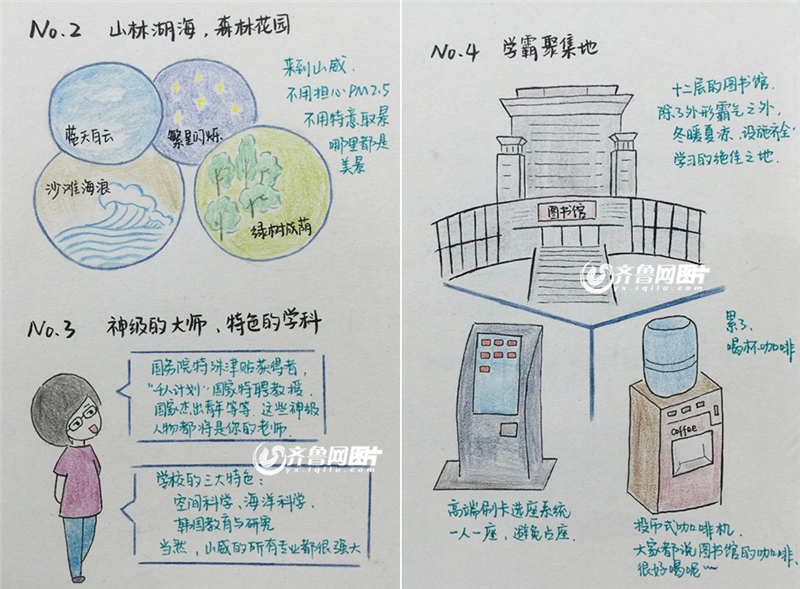 No.2 山林湖海，森林花园
来到山威，
不用担心PM2.5
不用特意取景
哪里都是
美景
蓝天白云
繁星闪烁
沙滩海浪
绿树成荫
No.3 神级的大师、特色的学科
国务院特殊津贴获得者，
“千人计划”国家特聘教授，
国家杰出青年等等，这些神级
人物都将是你的老师.
学校的三大特色：
空间科学、海洋科学、
韩国教育与研究
当然，山威的所有专业都很强大
齐鲁网图片
yx.iqilu.com
No.4 学霸聚集地
十二层的图书馆，
除了外形霸气之外，
冬暖夏凉，设施齐全，
学习的绝佳之地.
图书馆
齐鲁网图片
yx.iqilu.com
累了，
喝杯咖啡
coffee
高端刷卡选座系统
一人一座，避免占座.
投币式咖啡机.
大家都说图书馆的咖啡
很好喝呢~